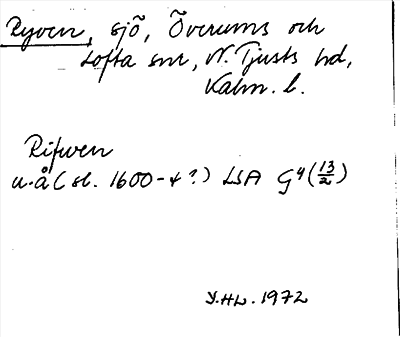 Ryven, sjö, Överums och
Lofta snr, N. Tjusts hd,
Kalm. l.
Rifwen
u.å (sl. 1600-t ?) LSA G4 (13/2)
Y.HL. 1972